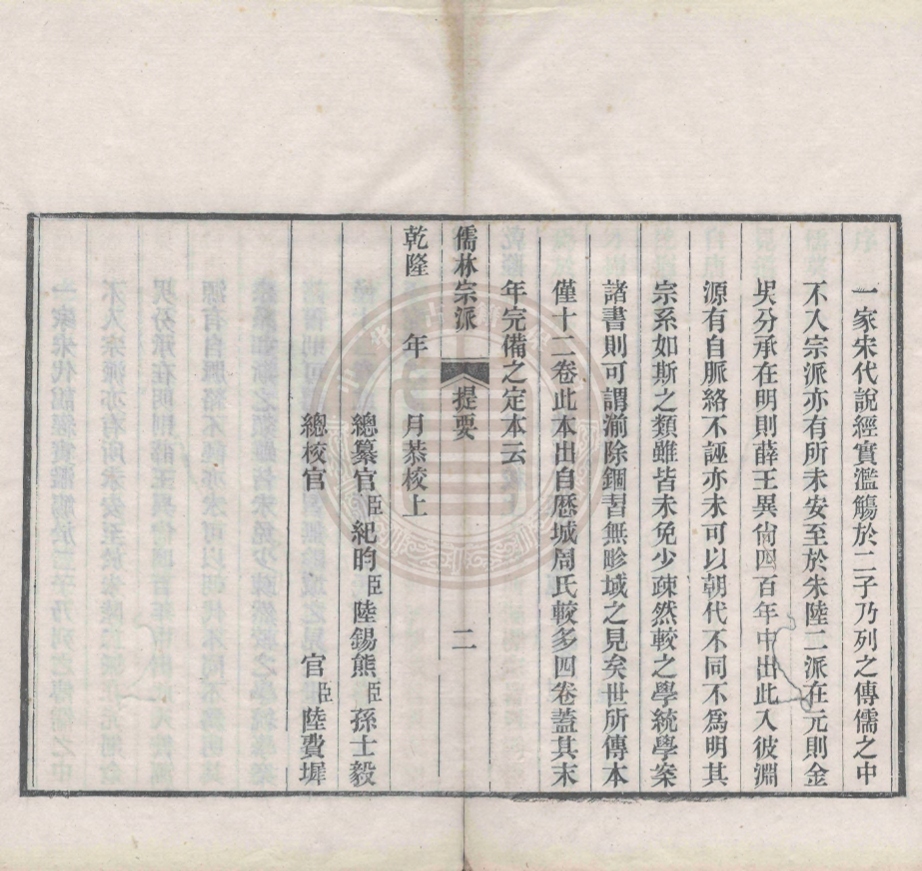 一家宋代說經實濫觴於二子乃列之傳儒之中
不入宗派亦有所未安至於朱陸二派在元則金
吳分承在明則薛王異尚四百年中出此入彼淵
源有自脈絡不誣亦未可以朝代不同不爲明其
宗系如斯之類雖皆未免少疎然較之學統學案
諸書則可謂湔除錮習無畛域之見矣世所傳本
僅十二卷此本出自歷城周氏較多四卷蓋其末
年完備之定本云
儒林宗派 提要 二
乾隆 年 月恭校上
總纂官臣紀昀臣陸錫熊臣孫士毅
總校官 官臣陸費墀